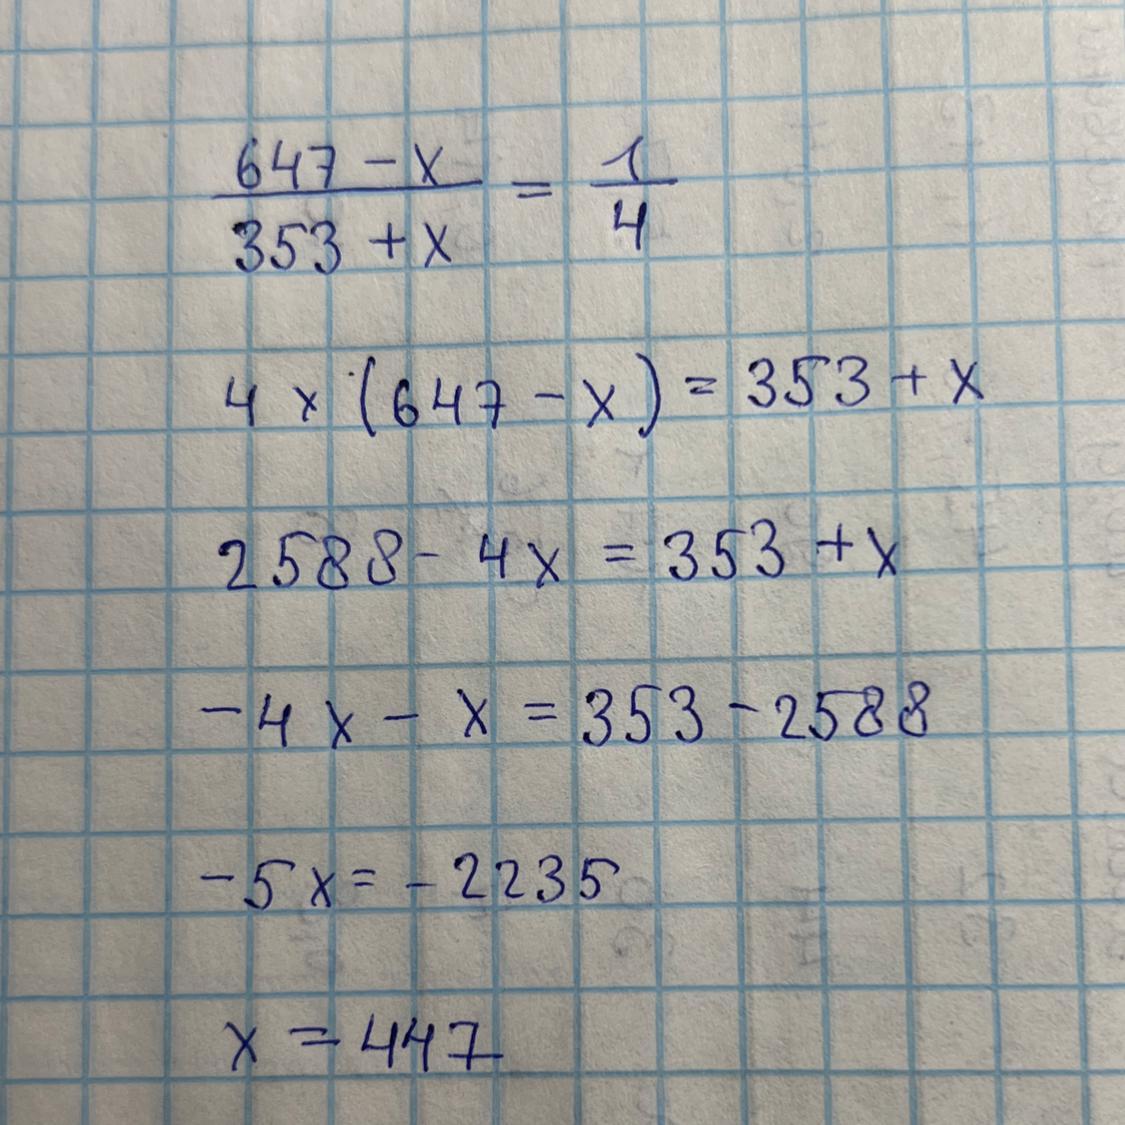 647 - x / 353 + x = 1 / 4
4 x (647 - x) = 353 + x
2588 - 4x = 353 + x
-4x - x = 353 - 2588
-5x = -2235
x = 447